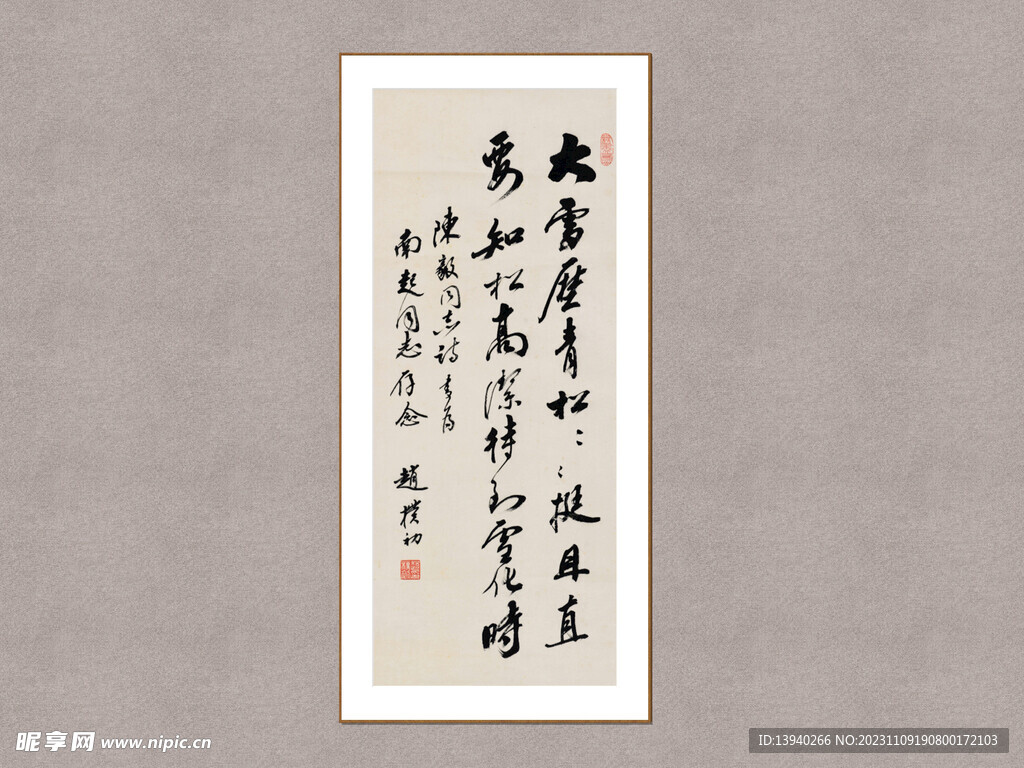 大雪壓青松〻〻挺且直
要知松高潔待到雪化時
陳毅同志詩 書為
南起同志存念 趙樸初
昵享网 www.nipic.cn
ID:13940266 NO:20231109190800172103